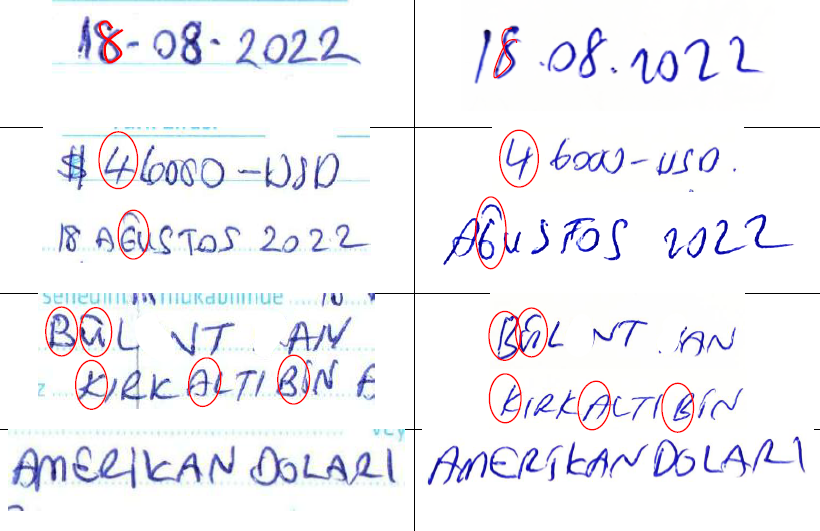 18-08-2022
18.08.2022
$ 46000-USD
46000-USD.
18 AĞUSTOS 2022
AĞUSTOS 2022
senedin mukabilinde
BUL VT. AN
BUL NT. AN
KIRKALTIBİN
KIRKALTIBİN
AMERİKAN DOLARI
AMERİKAN DOLARI